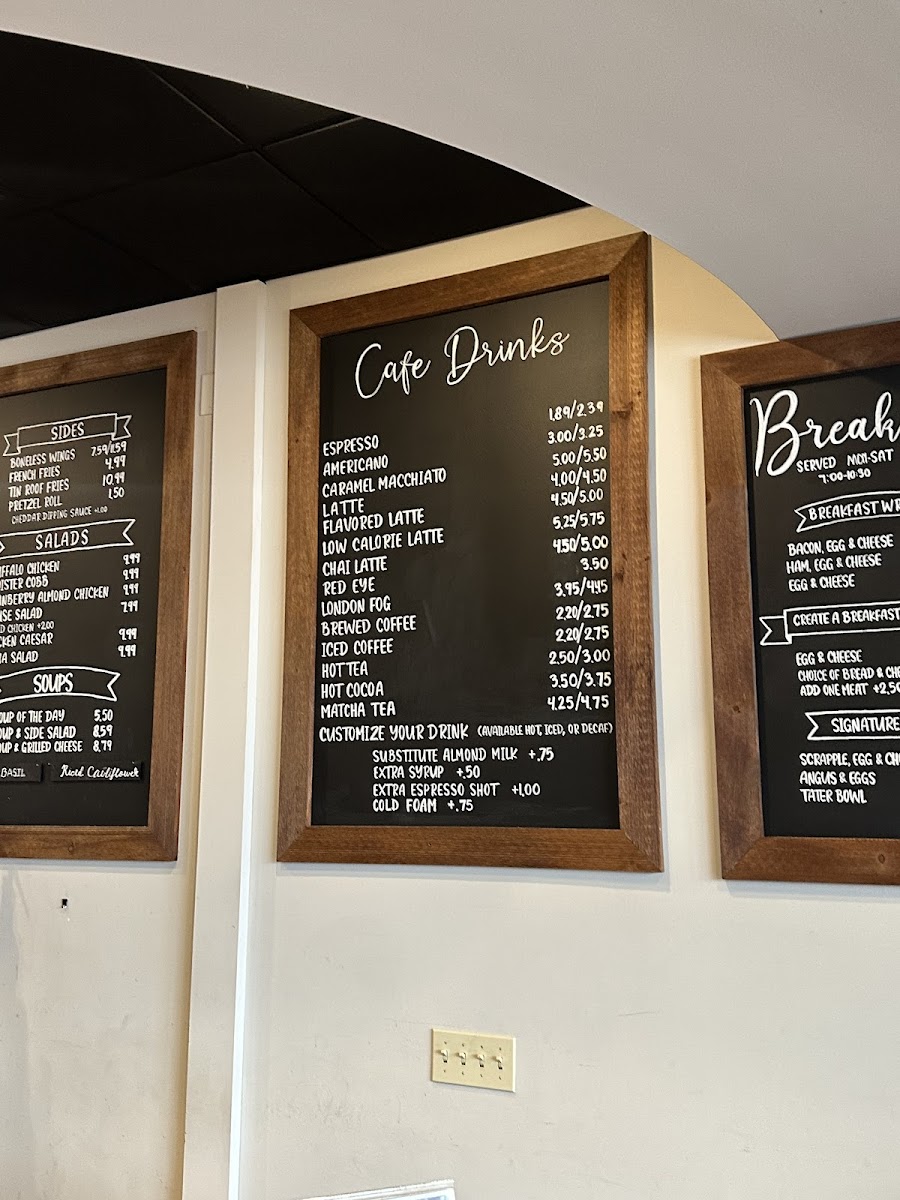 SIDES
BONELESS WINGS 7.59/11.59
FRENCH FRIES 4.99
TIN ROOF FRIES 10.99
PRETZEL ROLL 1.50
CHEDDAR DIPPING SAUCE +1.00
SALADS
FFALO CHICKEN 9.99
ISTER COBB 9.99
NBERRY ALMOND CHICKEN 9.99
SE SALAD 7.99
D CHICKEN +2.00
KEN CAESAR 9.99
A SALAD 9.99
SOUPS
OUP OF THE DAY 5.50
OUP & SIDE SALAD 8.59
OUP & GRILLED CHEESE 8.79
BASIL Riced Cauliflower
Cafe Drinks
ESPRESSO 1.89/2.39
AMERICANO 3.00/3.25
CARAMEL MACCHIATO 5.00/5.50
LATTE 4.00/4.50
FLAVORED LATTE 4.50/5.00
LOW CALORIE LATTE 5.25/5.75
CHAI LATTE 4.50/5.00
RED EYE 3.50
LONDON FOG 3.95/4.45
BREWED COFFEE 2.20/2.75
ICED COFFEE 2.20/2.75
HOT TEA 2.50/3.00
HOT COCOA 3.50/3.75
MATCHA TEA 4.25/4.75
CUSTOMIZE YOUR DRINK (AVAILABLE HOT, ICED, OR DECAF)
SUBSTITUTE ALMOND MILK +.75
EXTRA SYRUP +.50
EXTRA ESPRESSO SHOT +1.00
COLD FOAM +.75
Break
SERVED MON-SAT
7:00-10:30
BREAKFAST WR
BACON, EGG & CHEESE
HAM, EGG & CHEESE
EGG & CHEESE
CREATE A BREAKFAST
EGG & CHEESE
CHOICE OF BREAD & CHE
ADD ONE MEAT +2.50
SIGNATURE
SCRAPPLE, EGG & CH
ANGUS & EGGS
TATER BOWL